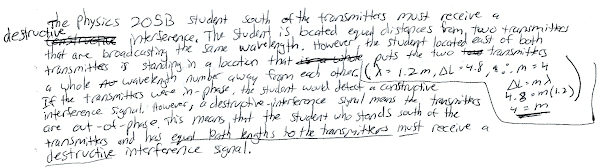 The Physics 205B student south of the transmitters must receive a
destructive interference. The student is located equal distances from two transmitters
that are broadcasting the same wavelength. However the student located east of both
transmitters is standing in a location that puts the two transmitters
a whole wavelength number away from each other. (λ = 1.2 m, ΔL = 4.8, ∴ m = 4
If the transmitters were in-phase, the student would detect a constructive
ΔL = mλ
interference signal. However, a destructive-interference signal means the transmitters
4.8 = m(1.2)
are out-of-phase, this means that the student who stands south of the
4 = m
transmitters and has equal path lengths to the transmitters must receive a
destructive interference signal.